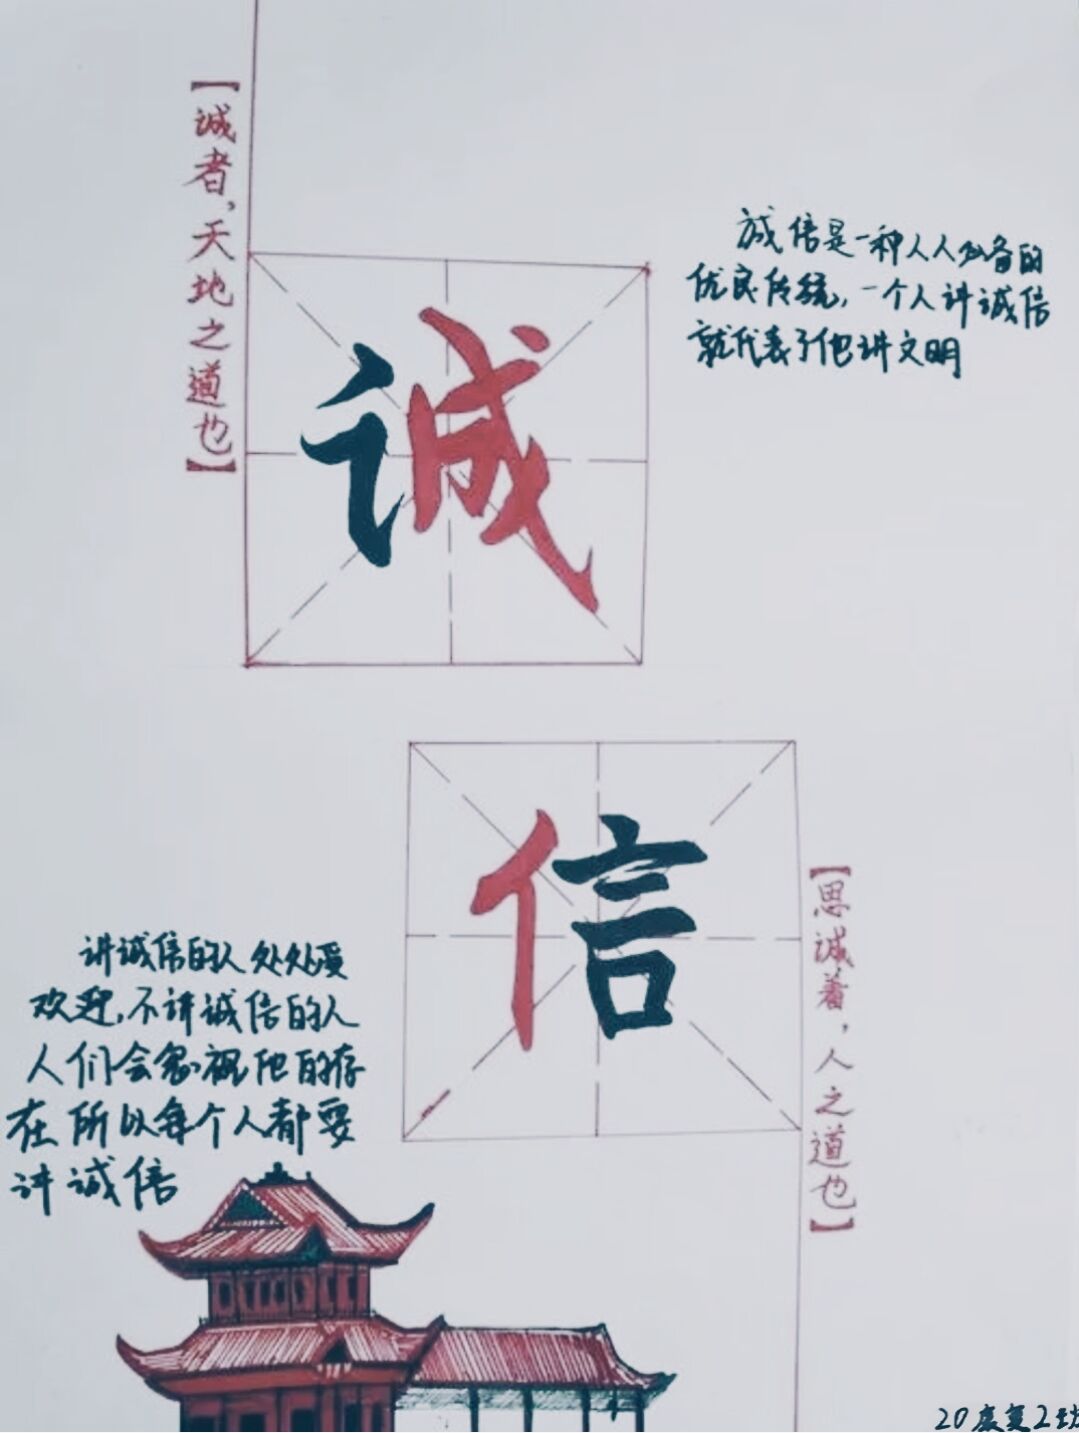 【诚者，天地之道也】
诚信是一种人人必备的
优良传统，一个人讲诚信
就代表了他讲文明
诚
信
【思诚着，人之道也】
讲诚信的人处处受
欢迎，不讲诚信的人
人们会忽视他的存
在所以每个人都要
讲诚信
20康复2班